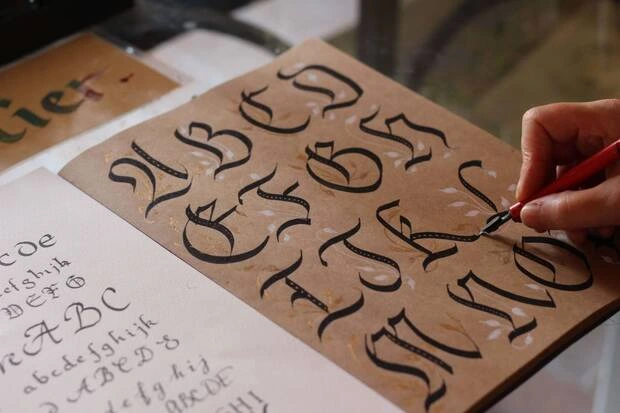 A B C D
E F G H
I J K L
M N O
cDe
defghijk
DEFG
ABC
abcdefghijk
ABCDE
defghij
ABCDE